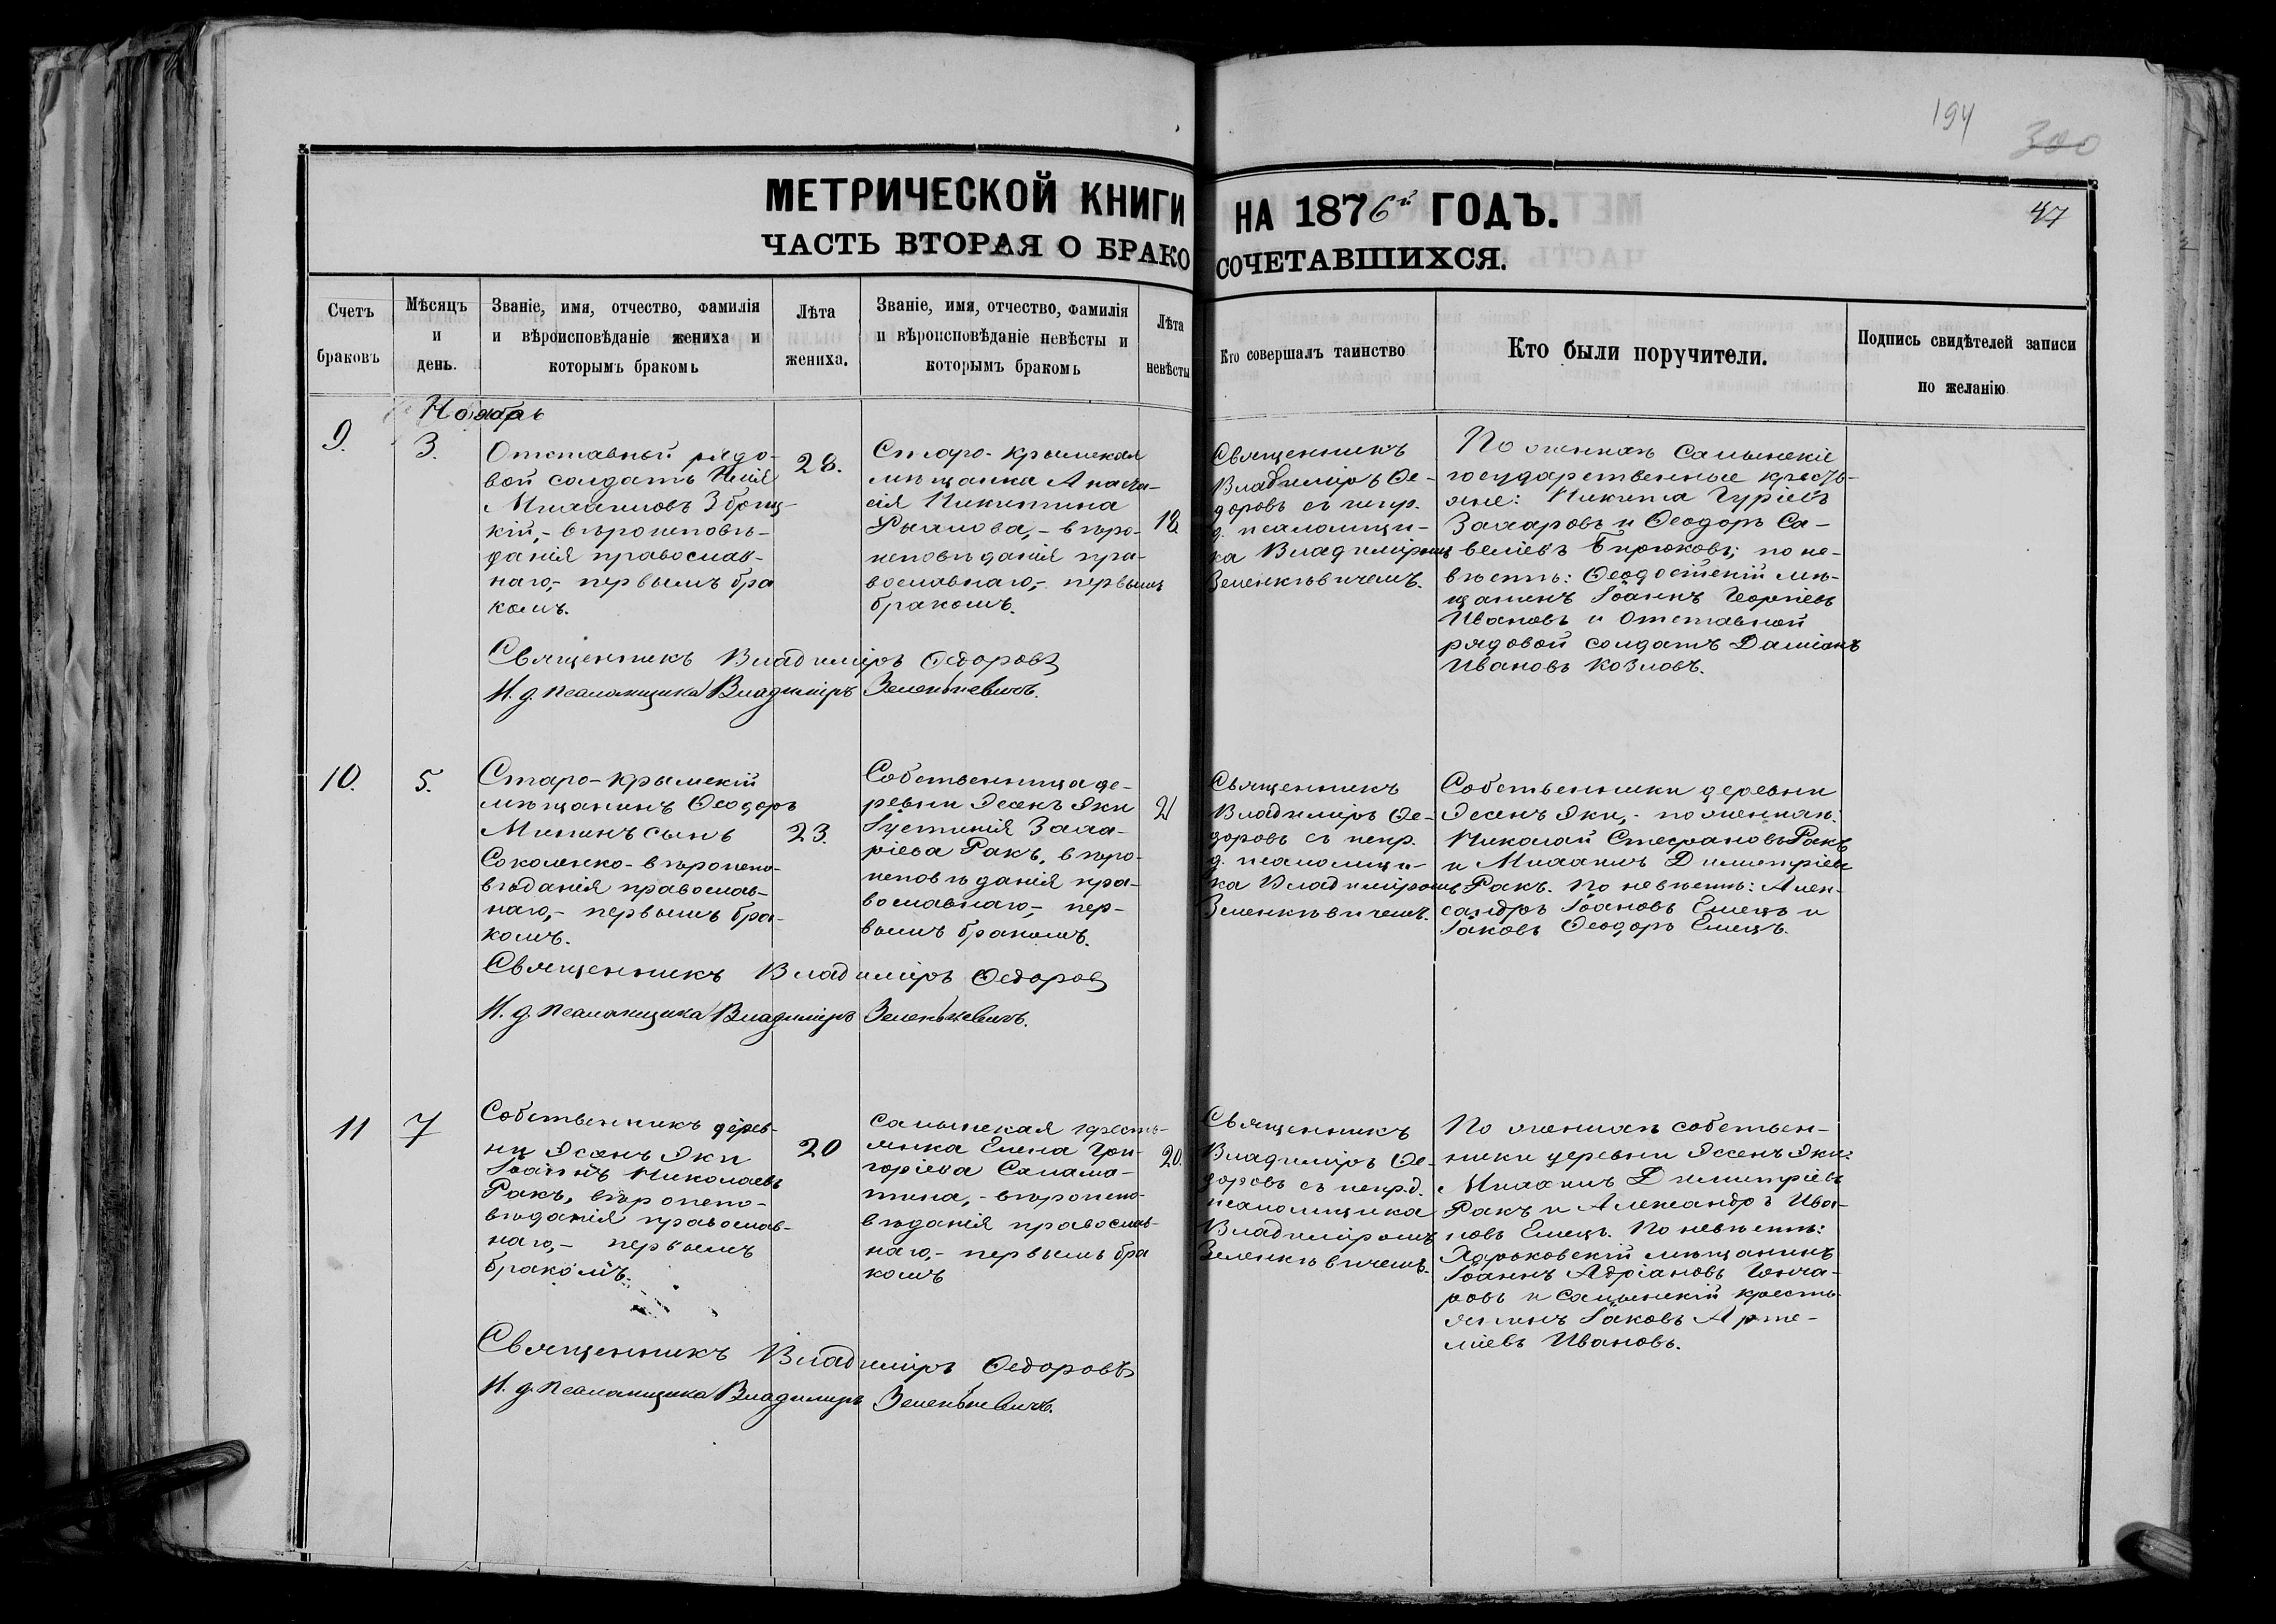 194
300
47
МЕТРИЧЕСКОЙ КНИГИ НА 1876й ГОДЪ.
ЧАСТЬ ВТОРАЯ О БРАКОСОЧЕТАВШИХСЯ.
Счетъ браковъ
Мѣсяцъ и день.
Званіе, имя, отчество, фамилія
и вѣроисповѣданіе жениха и
которымъ бракомъ
Лѣта жениха.
Званіе, имя, отчество, фамилія
и вѣроисповѣданіе невѣсты и
которымъ бракомъ
Лѣта невѣсты
Кто совершалъ таинство
Кто были поручители.
Подпись свидѣтелей записи
по желанію
Ноябрь
9.
3.
Отставный рядо-
вой солдатъ Илія
Михаиловъ
кій,- вѣроисповѣ-
данія православ-
наго,- первымъ бра
комъ.
28.
Старо-Крымская
мѣщанка Анаста-
сія Никитина
Рыжова,- вѣро-
исповѣданія пра-
вославнаго,- первымъ
бракомъ.
18
Священникъ
Владиміръ Ѳе-
доровъ съ испр.
д. псаломщи-
ка Владиміромъ
Зеленкѣвичемъ.
По женихѣ Салынскіе
государственные кресть-
яне: Никита Гуріевъ
Захаровъ и Ѳеодоръ Са-
веліевъ Бирюковъ; по не-
вѣстѣ: Ѳеодосійскій мѣ-
щанинъ Іоаннъ Георгіевъ
Ивановъ и отставной
рядовой солдатъ Даміанъ
Ивановъ Козловъ.
Священникъ Владиміръ Ѳедоровъ
И. д. псаломщика Владиміръ Зеленькевичъ.
10.
5.
Старо-Крымскій
мѣщанинъ Ѳеодоръ
Мининъ сынъ
Соколенко- вѣроиспо-
вѣданія православ-
наго,- первымъ бра-
комъ.
23.
Собственница де-
ревни Эсенъ Эки
Іустинія Заха-
ріева Ракъ, вѣро-
исповѣданія пра-
вославнаго,- пер-
вымъ бракомъ.
21
Священникъ
Владиміръ Ѳе-
доровъ съ испр.
д. псаломщи-
ка Владиміромъ
Зеленкѣвичемъ.
Собственники деревни
Эсенъ Эки,- по женихѣ:
Николай Стефановъ Ракъ
и Михаилъ Димитріевъ
Ракъ. По невѣстѣ: Алек-
сандръ Іоановъ Емецъ и
Іаковъ Ѳеодоръ Емецъ.
Священникъ Владиміръ Ѳедоровъ
И. д. псаломщика Владиміръ Зеленькевичъ.
11
7
Собственникъ дерев-
ни Эсенъ Эки
Іоаннъ Николаевъ
Ракъ, вѣроиспо-
вѣданія православ-
наго,- первымъ
бракомъ.
20
Салынская кресть-
янка Елена Гри-
горіева Салама-
тина,- вѣроиспо-
вѣданія православ-
наго,- первымъ бра
комъ
20.
Священникъ
Владиміръ Ѳе-
доровъ съ испр. д.
псаломщика
Владиміромъ
Зеленкѣвичемъ.
По женихѣ собствен-
ники деревни Эсенъ Эки:
Михаилъ Димитріевъ
Ракъ и Александръ Ива-
новъ Емецъ. По невѣстѣ:
Харьковскій мѣщанинъ
Іоаннъ Адріановъ Гонча-
ровъ и Салынскій кресть-
янинъ Іаковъ Арте-
міевъ Ивановъ.
Священникъ Владиміръ Ѳедоровъ
И. д. псаломщика Владиміръ Зеленькевичъ.